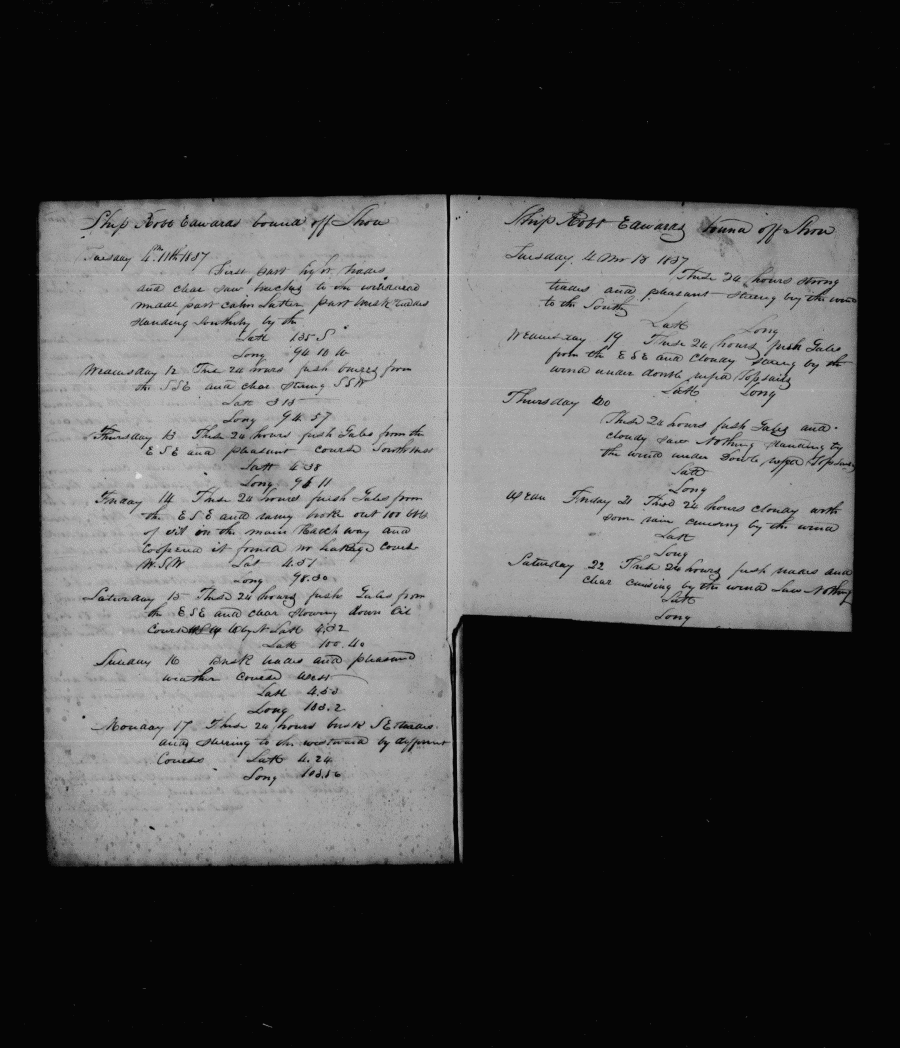 Ship Robt Edwards bound off Shore
Tuesday 4m 11th 1837
First part light trades
and clear saw to windward
midle part calm Latter part brisk trades
standing Southerly by the
Latt 135 S
Long 94 10 W
Wednesday 12 These 24 hours fresh breezes from
the SSE and clear stering SSW
Latt 313
Long 94.57
Thursday 13 These 24 hours fresh Gales from the
ESE and pleasant course Southwest
Latt 4.38
Long 96 11
Friday 14 These 24 hours fresh Gales from
the ESE and rainy broke out 100 bbls
of oil in the main Hatchway and
Coopered it found no leakage course
W.S.W Lat 4.51
Long 98.30
Saturday 15 These 24 hours fresh Gales from
the ESE and clear stowing down Oil
Course W by N Latt 4.52
Latt 100.40
Sunday 16 Brisk trades and pleasant
weather course West
Latt 4.53
Long 103.2
Monday 17 These 24 hours brisk SE trades
and stering to the westward by different
Courses Latt 4.24
Long 103.56
Ship Robt Edwards bound off Shore
Tuesday 4 Mo 18 1837
These 24 hours strong
trades and pleasant stering by the wind
to the South
Latt Long
Wednesday 19 These 24 hours fresh Gales
from the ESE and cloudy stering by the
wind under double reefed Topsails
Latt Long
Thursday 20
These 24 hours fresh Gales and
cloudy saw Nothing standing by
the wind under Double reefed Topsails
Latt
Long
Friday 21 These 24 hours cloudy with
some rain cruising by the wind
Latt
Long
Saturday 22 These 24 hours fresh trades and
clear cruising by the wind Saw Nothing
Latt
Long